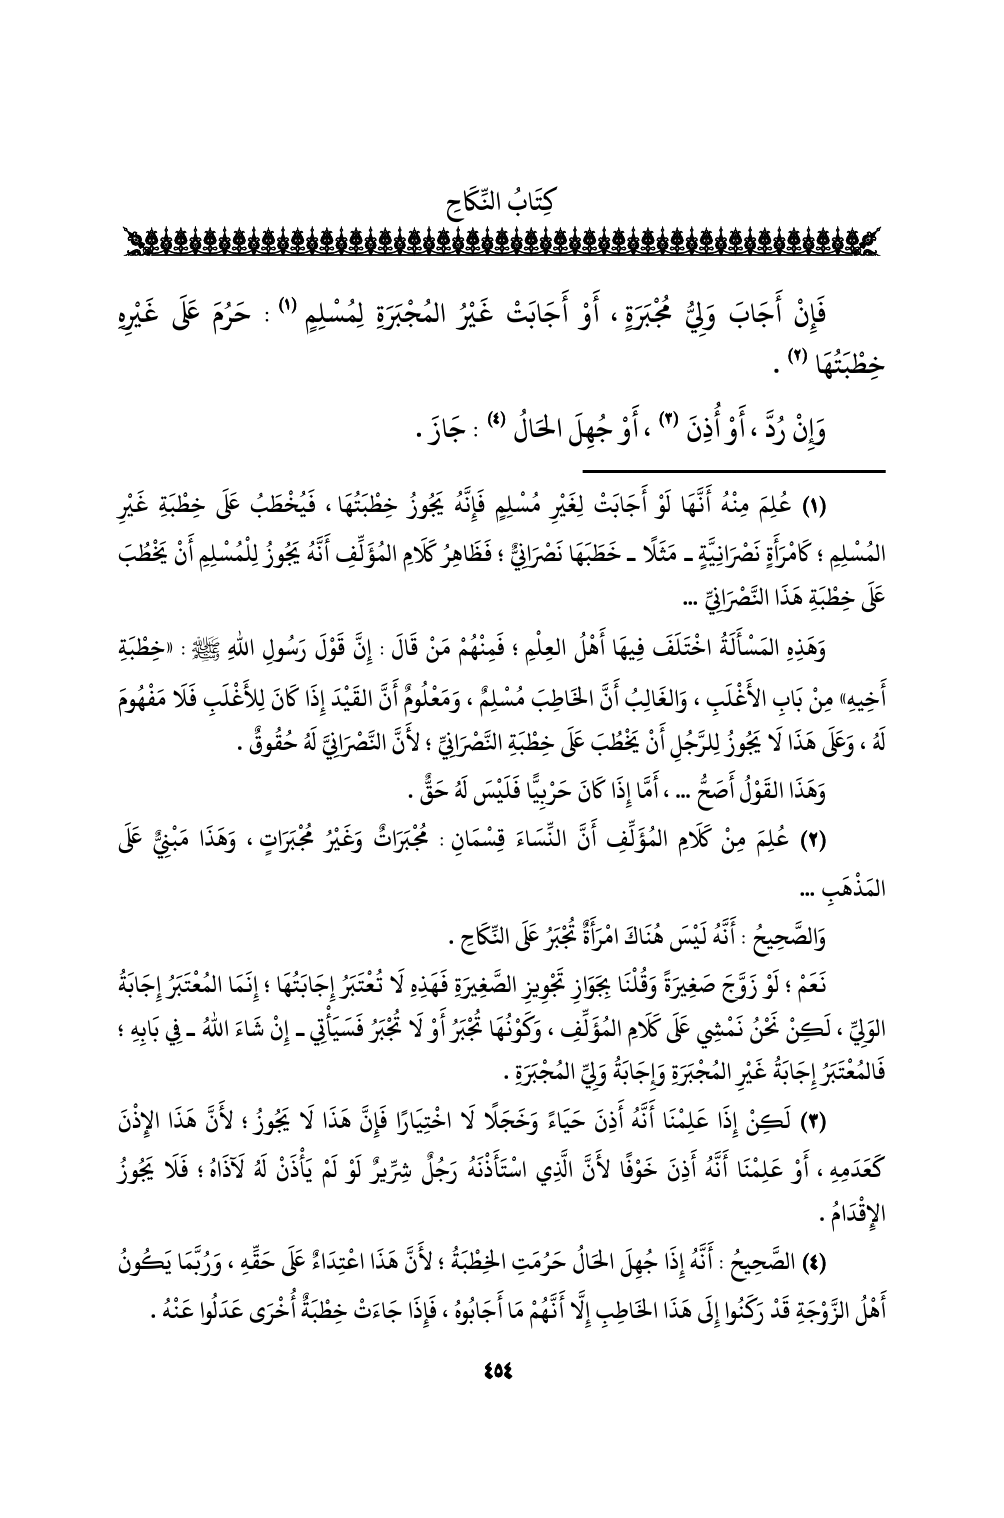 كِتَابُ النِّكَاحِ
فَإِنْ أَجَابَ وَلِيُّ مُجْبَرَةٍ ، أَوْ أَجَابَتْ غَيْرُ المُجْبَرَةِ لِمُسْلِمٍ (١) : حَرُمَ عَلَى غَيْرِهِ
خِطْبَتُهَا (٢) .
وَإِنْ رُدَّ ، أَوْ أُذِنَ (٣) ، أَوْ جُهِلَ الحَالُ (٤) : جَازَ .
(١) عُلِمَ مِنْهُ أَنَّهَا لَوْ أَجَابَتْ لِغَيْرِ مُسْلِمٍ فَإِنَّهُ يَجُوزُ خِطْبَتُهَا ، فَيُخْطَبُ عَلَى خِطْبَةِ غَيْرِ
المُسْلِمِ ؛ كَامْرَأَةٍ نَصْرَانِيَّةٍ ـ مَثَلًا ـ خَطَبَهَا نَصْرَانِيٌّ ؛ فَظَاهِرُ كَلَامِ المُؤَلِّفِ أَنَّهُ يَجُوزُ لِلْمُسْلِمِ أَنْ يَخْطُبَ
عَلَى خِطْبَةِ هَذَا النَّصْرَانِيِّ ...
وَهَذِهِ المَسْأَلَةُ اخْتَلَفَ فِيهَا أَهْلُ العِلْمِ ؛ فَمِنْهُمْ مَنْ قَالَ : إِنَّ قَوْلَ رَسُولِ اللهِ ﷺ : «خِطْبَةِ
أَخِيهِ» مِنْ بَابِ الأَغْلَبِ ، وَالغَالِبُ أَنَّ الخَاطِبَ مُسْلِمٌ ، وَمَعْلُومٌ أَنَّ القَيْدَ إِذَا كَانَ لِلأَغْلَبِ فَلَا مَفْهُومَ
لَهُ ، وَعَلَى هَذَا لَا يَجُوزُ لِلرَّجُلِ أَنْ يَخْطُبَ عَلَى خِطْبَةِ النَّصْرَانِيِّ ؛ لأَنَّ النَّصْرَانِيَّ لَهُ حُقُوقٌ .
وَهَذَا القَوْلُ أَصَحُّ ... ، أَمَّا إِذَا كَانَ حَرْبِيًّا فَلَيْسَ لَهُ حَقٌّ .
(٢) عُلِمَ مِنْ كَلَامِ المُؤَلِّفِ أَنَّ النِّسَاءَ قِسْمَانِ : مُجْبَرَاتٌ وَغَيْرُ مُجْبَرَاتٍ ، وَهَذَا مَبْنِيٌّ عَلَى
المَذْهَبِ ...
وَالصَّحِيحُ : أَنَّهُ لَيْسَ هُنَاكَ امْرَأَةٌ تُجْبَرُ عَلَى النِّكَاحِ .
نَعَمْ ؛ لَوْ زَوَّجَ صَغِيرَةً وَقُلْنَا بِجَوَازِ تَجْوِيزِ الصَّغِيرَةِ فَهَذِهِ لَا تُعْتَبَرُ إِجَابَتُهَا ؛ إِنَمَا المُعْتَبَرُ إِجَابَةُ
الوَلِيِّ ، لَكِنْ نَحْنُ نَمْشِي عَلَى كَلَامِ المُؤَلِّفِ ، وَكَوْنُهَا تُجْبَرُ أَوْ لَا تُجْبَرُ فَسَيَأْتِي ـ إِنْ شَاءَ اللهُ ـ فِي بَابِهِ ؛
فَالمُعْتَبَرُ إِجَابَةُ غَيْرِ المُجْبَرَةِ وَإِجَابَةُ وَلِيِّ المُجْبَرَةِ .
(٣) لَكِنْ إِذَا عَلِمْنَا أَنَّهُ أَذِنَ حَيَاءً وَخَجَلًا لَا اخْتِيَارًا فَإِنَّ هَذَا لَا يَجُوزُ ؛ لأَنَّ هَذَا الإِذْنَ
كَعَدَمِهِ ، أَوْ عَلِمْنَا أَنَّهُ أَذِنَ خَوْفًا لأَنَّ الَّذِي اسْتَأْذَنَهُ رَجُلٌ شِرِّيرٌ لَوْ لَمْ يَأْذَنْ لَهُ لَآذَاهُ ؛ فَلَا يَجُوزُ
الإِقْدَامُ .
(٤) الصَّحِيحُ : أَنَّهُ إِذَا جُهِلَ الحَالُ حَرُمَتِ الخِطْبَةُ ؛ لأَنَّ هَذَا اعْتِدَاءٌ عَلَى حَقِّهِ ، وَرُبَّمَا يَكُونُ
أَهْلُ الزَّوْجَةِ قَدْ رَكَنُوا إِلَى هَذَا الخَاطِبِ إِلَّا أَنَّهُمْ مَا أَجَابُوهُ ، فَإِذَا جَاءَتْ خِطْبَةٌ أُخْرَى عَدَلُوا عَنْهُ .
٤٥٤